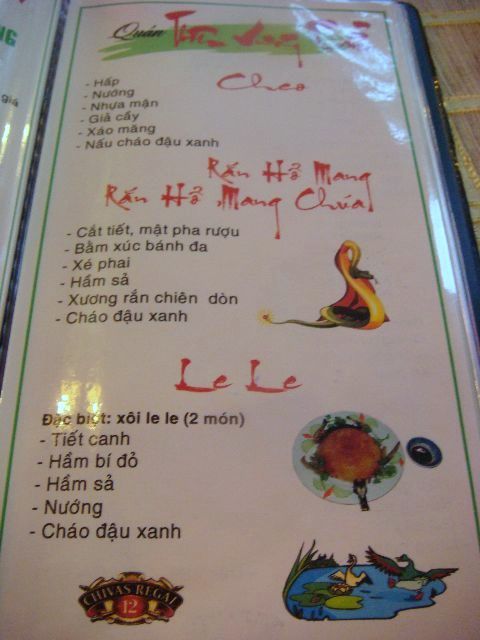 Quán
Cheo
- Hấp
- Nướng
- Nhựa mận
- Giả cầy
- Xáo măng
- Nấu cháo đậu xanh
Rắn Hổ Mang
Rắn Hổ Mang Chúa
- Cắt tiết, mật pha rượu
- Bằm xúc bánh đa
- Xé phai
- Hầm sả
- Xương rắn chiên dòn
- Cháo đậu xanh
Le Le
Đặc biệt: xôi le le (2 món)
- Tiết canh
- Hầm bí đỏ
- Hầm sả
- Nướng
- Cháo đậu xanh
CHIVAS REGAL
12
giá